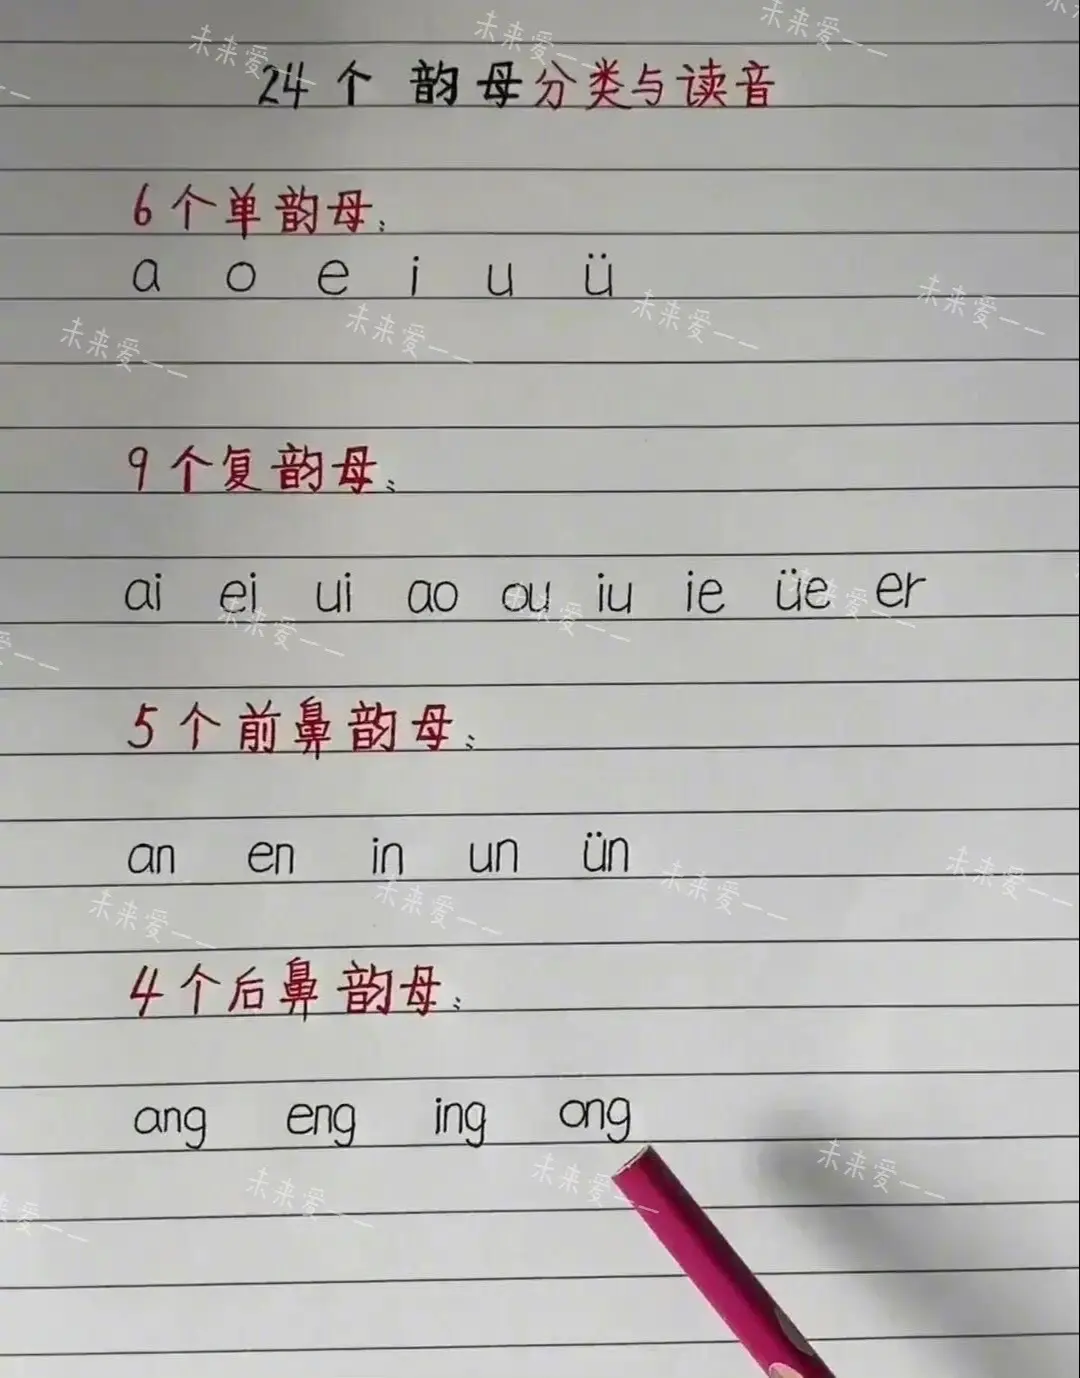 24个 韵母分类与读音
6个单韵母：
a o e i u ü
9个复韵母：
ai ei ui ao ou iu ie üe er
5个前鼻韵母：
an en in un ün
4个后鼻韵母：
ang eng ing ong
未来爱一一